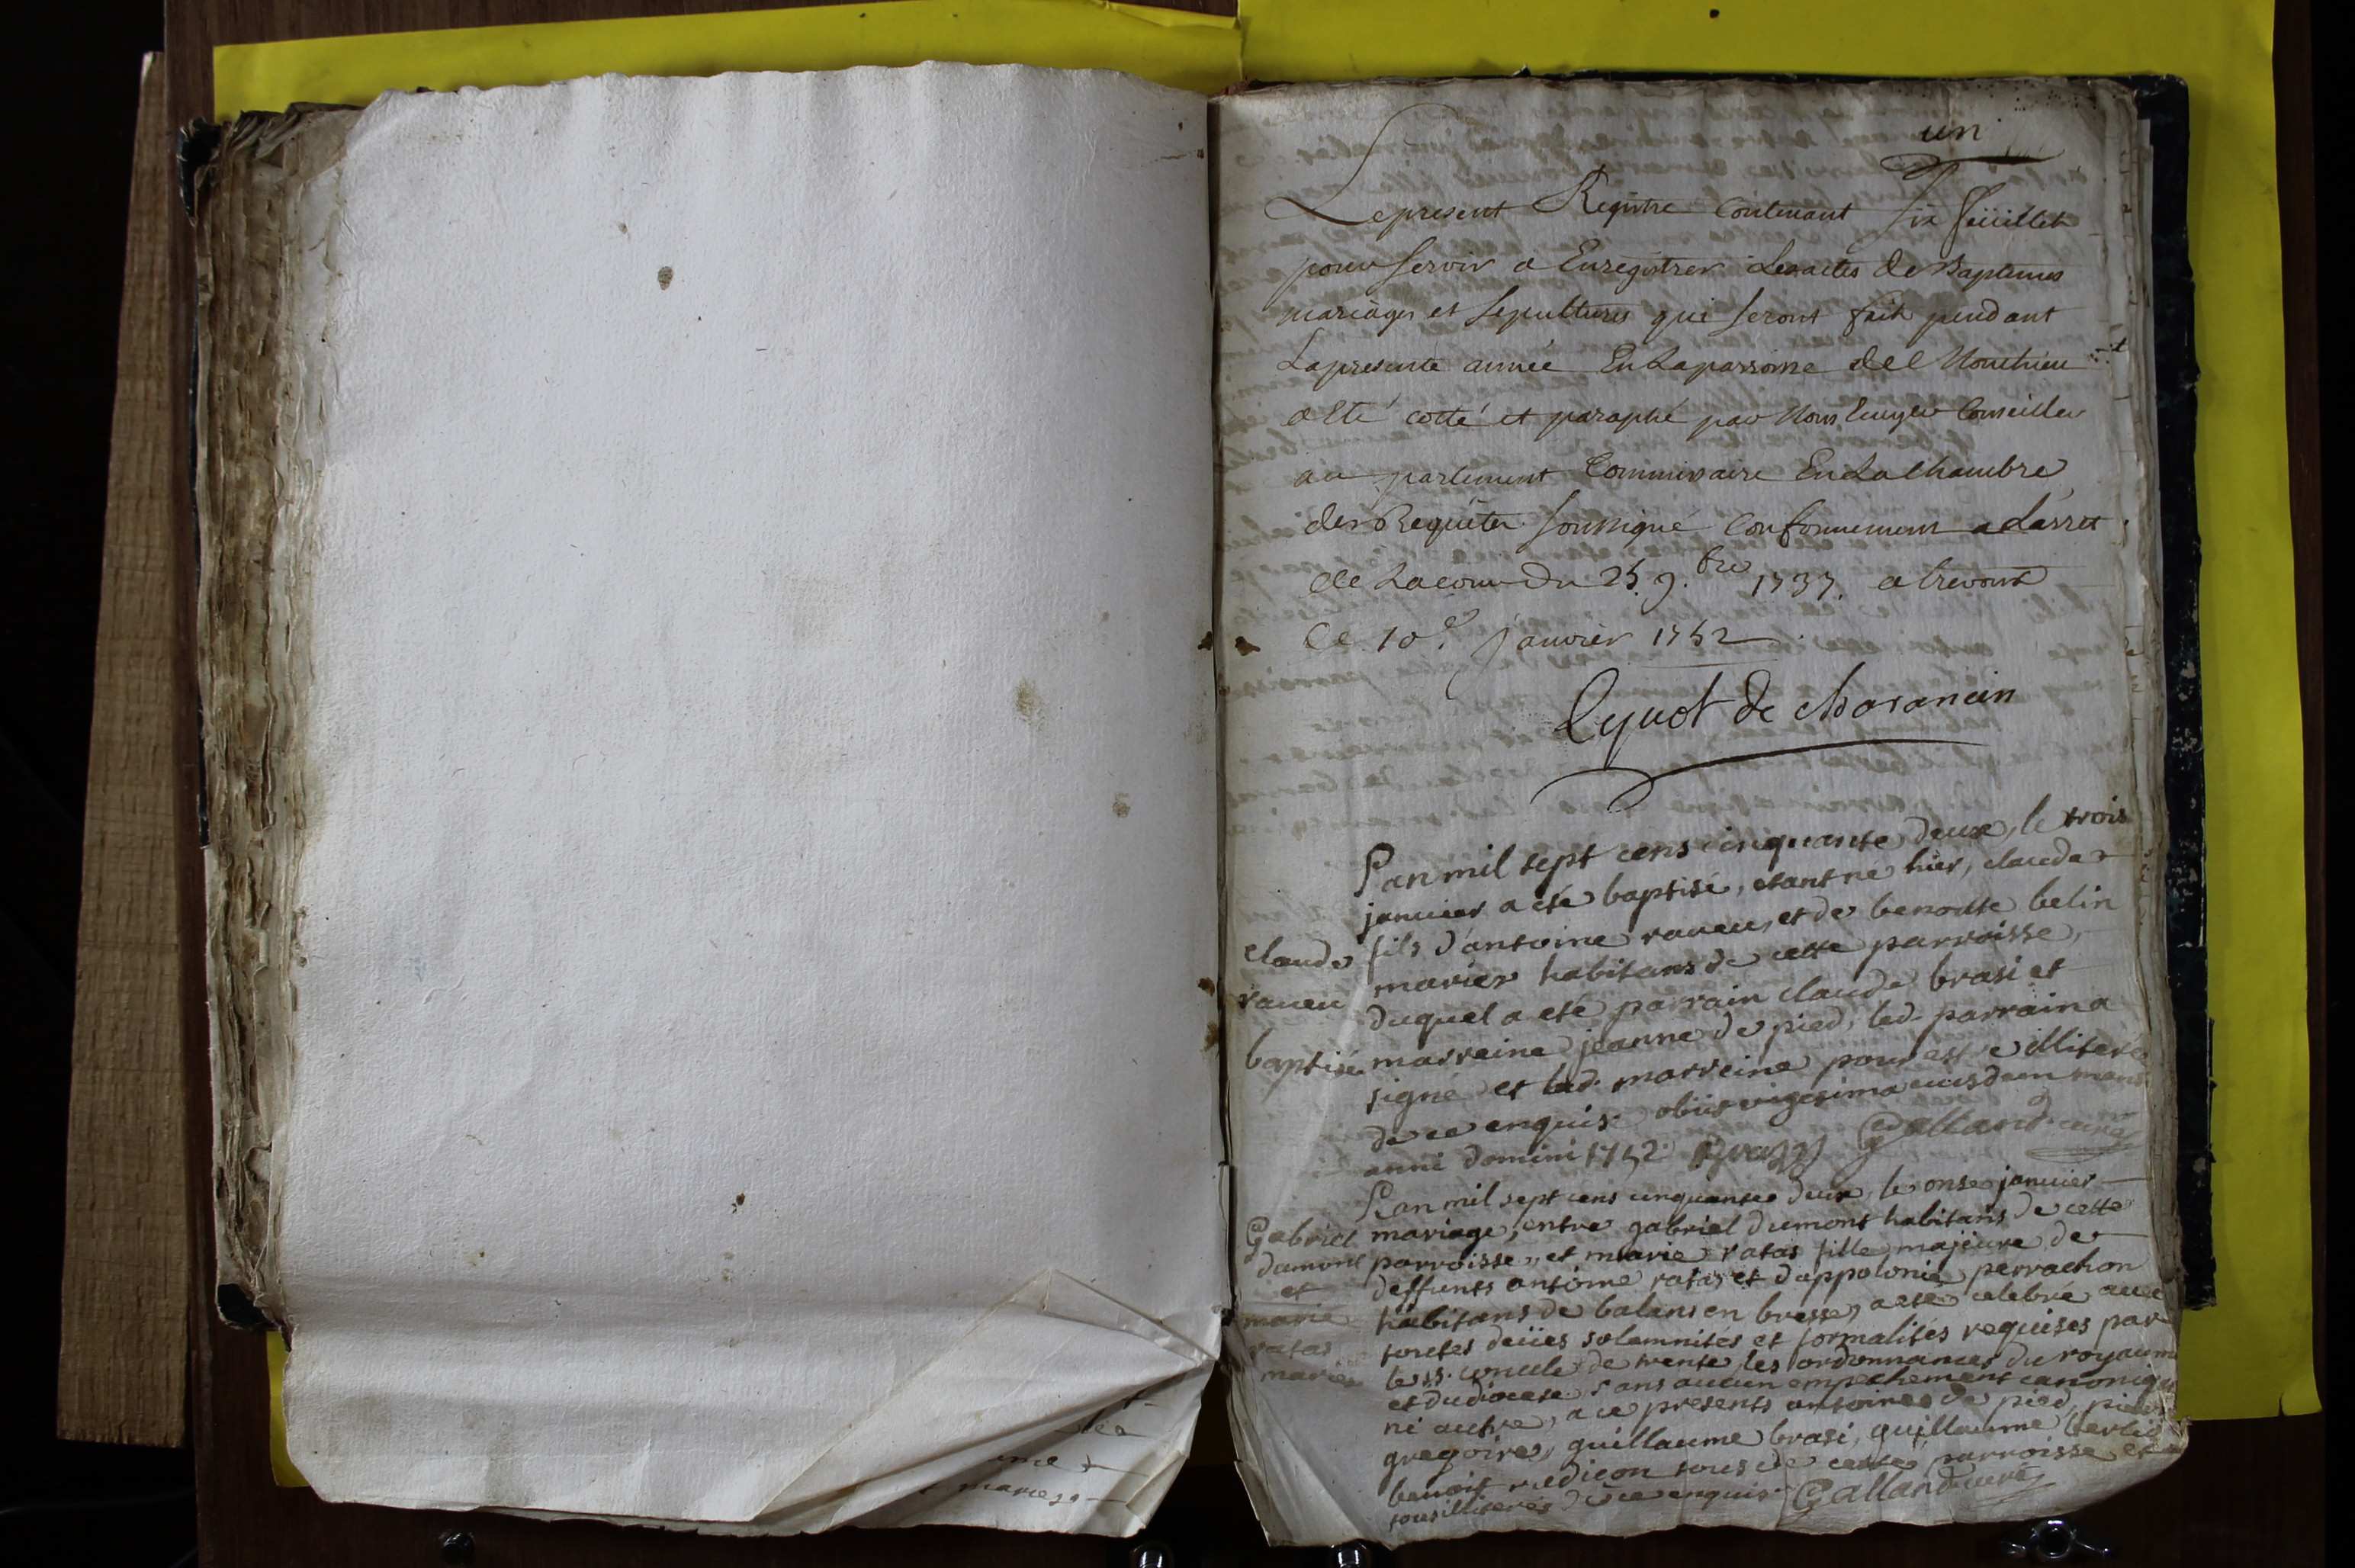 un
Le present Registre Contenant six feüillet
pour servir a Enregistrer Les actes de Baptemes
mariages et sepultures qui seront fait pendant
La presente année En La parroisse de
a Eté cotté et paraphé par Nous Ecuyer Conseiller
au parlement Commissaire En La Chambre
des Requetes soussigné Conformement a Larret
de La cour du 25. 9.bre 1737. a trevoux
Ce 10.e janvier 1752
de
L'an mil sept cens cinquante deux, le trois
janvier a eté baptisé, etant né hier, claude
fils d'antoine raveu, et de benoite belin
mariez habitans de cette parroisse,
duquel a eté parrain claude brasi et
marreine jeanne de pied, led. parrain a
signé et lad. marreine pour estre illiterée
de ce enquis. obiit vigesima eiusdem mens
anni domini 1752. Brazy Galland curé
claude
raveu
baptisé
L'an mil sept cens cinquante deux, le onse janvier
mariage, entre gabriel dumont habitans de cette
parroisse, et marie ratas fille majeure de
deffunts antoine ratas et d'appolonie perrachon
habitans de balans en bresse, a eté celebré avec
toutes deües solemnités et formalités requises par
le st. concile de trente, les ordonnances du royaume
et du diocese sans aucun empechement canonique
ni autre, a ce presents antoine de pied, pierre
gregoire, guillaume brasi, guillaume
benoit tous de cette parroisse et
tous illiterés de ce enquis. Galland curé
Gabriel
dumont
et
marie
ratas
mariez